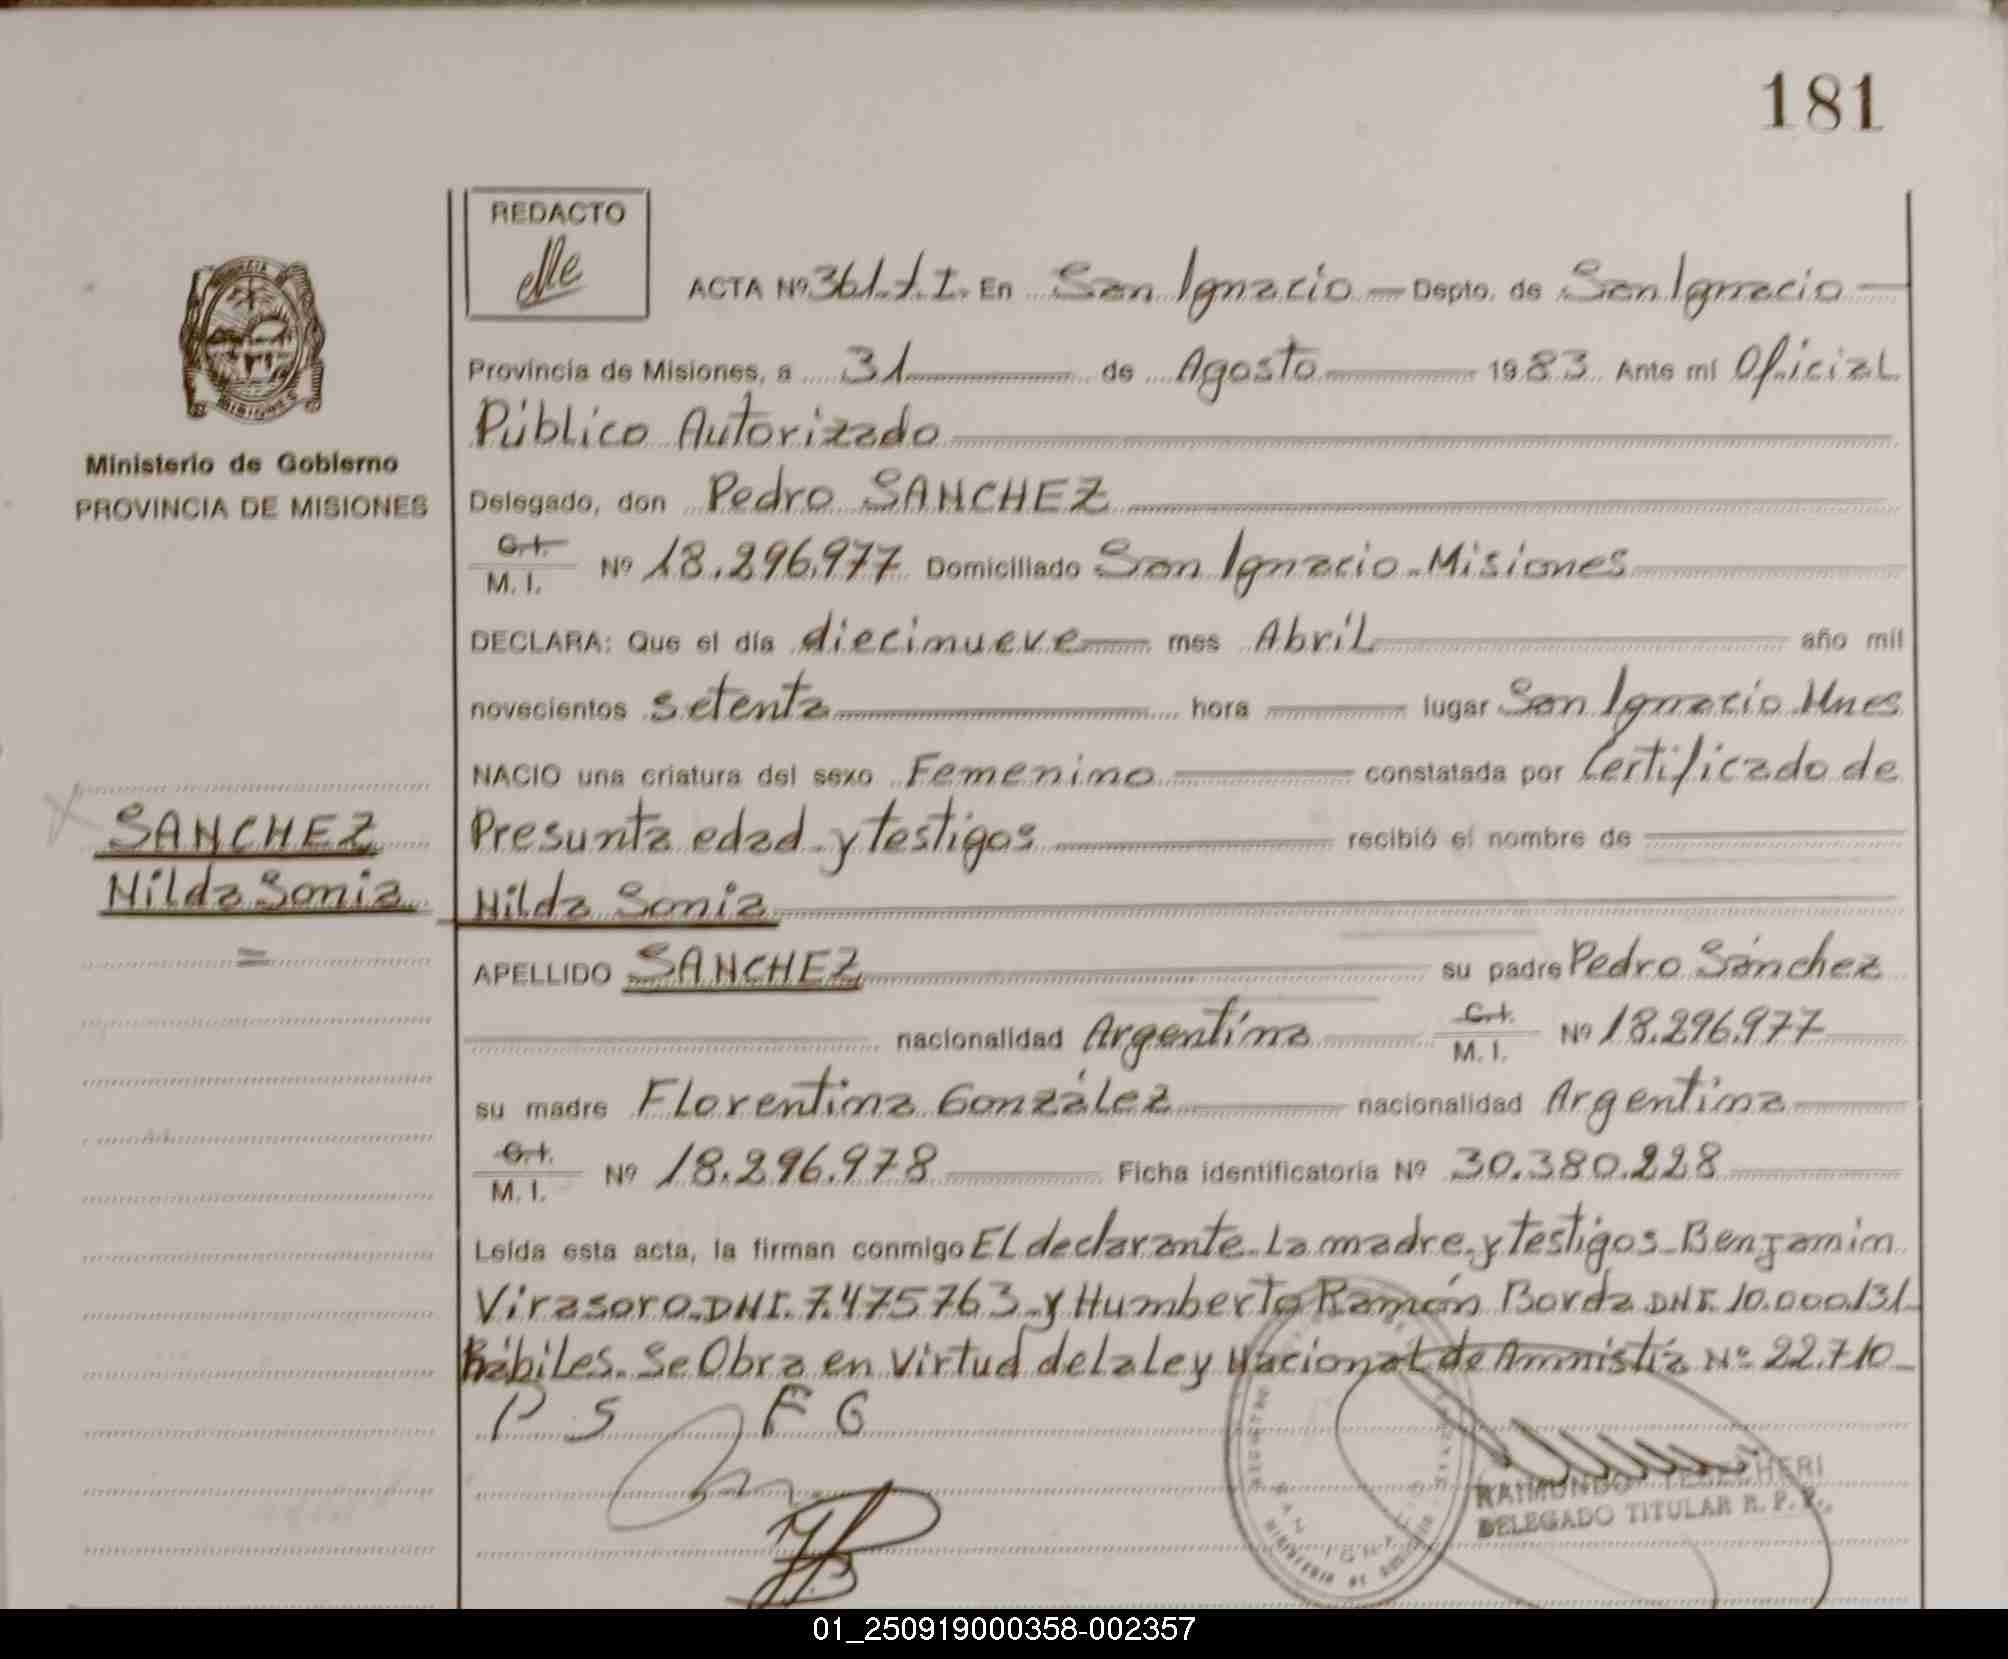 181
REDACTO
ACTA Nº 361.T.I. En San Ignacio — Depto. de San Ignacio —
Provincia de Misiones, a 31 de Agosto 1983 Ante mí Oficial
Público Autorizado
Ministerio de Gobierno
PROVINCIA DE MISIONES
Delegado, don Pedro SANCHEZ
C.I. M.I. Nº 18.296.977 Domiciliado San Ignacio-Misiones
DECLARA: Que el día diecinueve mes Abril año mil
novecientos setenta hora lugar San Ignacio Mnes
NACIO una criatura del sexo Femenino constatada por Certificado de
Presunta edad y testigos recibió el nombre de
SANCHEZ
Nilda Sonia
=
Nilda Sonia
APELLIDO SANCHEZ su padre Pedro Sánchez
nacionalidad Argentina C.I. M.I. Nº 18.296.977
su madre Florentina González nacionalidad Argentina
C.I. M.I. Nº 18.296.978 Ficha identificatoria Nº 30.380.228
Leída esta acta, la firman conmigo El declarante-La madre-y testigos-Benjamin
Virasoro-DNI. 7.475763-y Humberto Ramón Borda DNI. 10.000.131-
hábiles. Se Obra en Virtud de la ley Nacional de Amnistía Nº 22.710-
P S F G
RAIMUNDO
DELEGADO TITULAR R. P. P.
SAN IGNACIO
MINISTERIO DE GOBIERNO
01_250919000358-002357